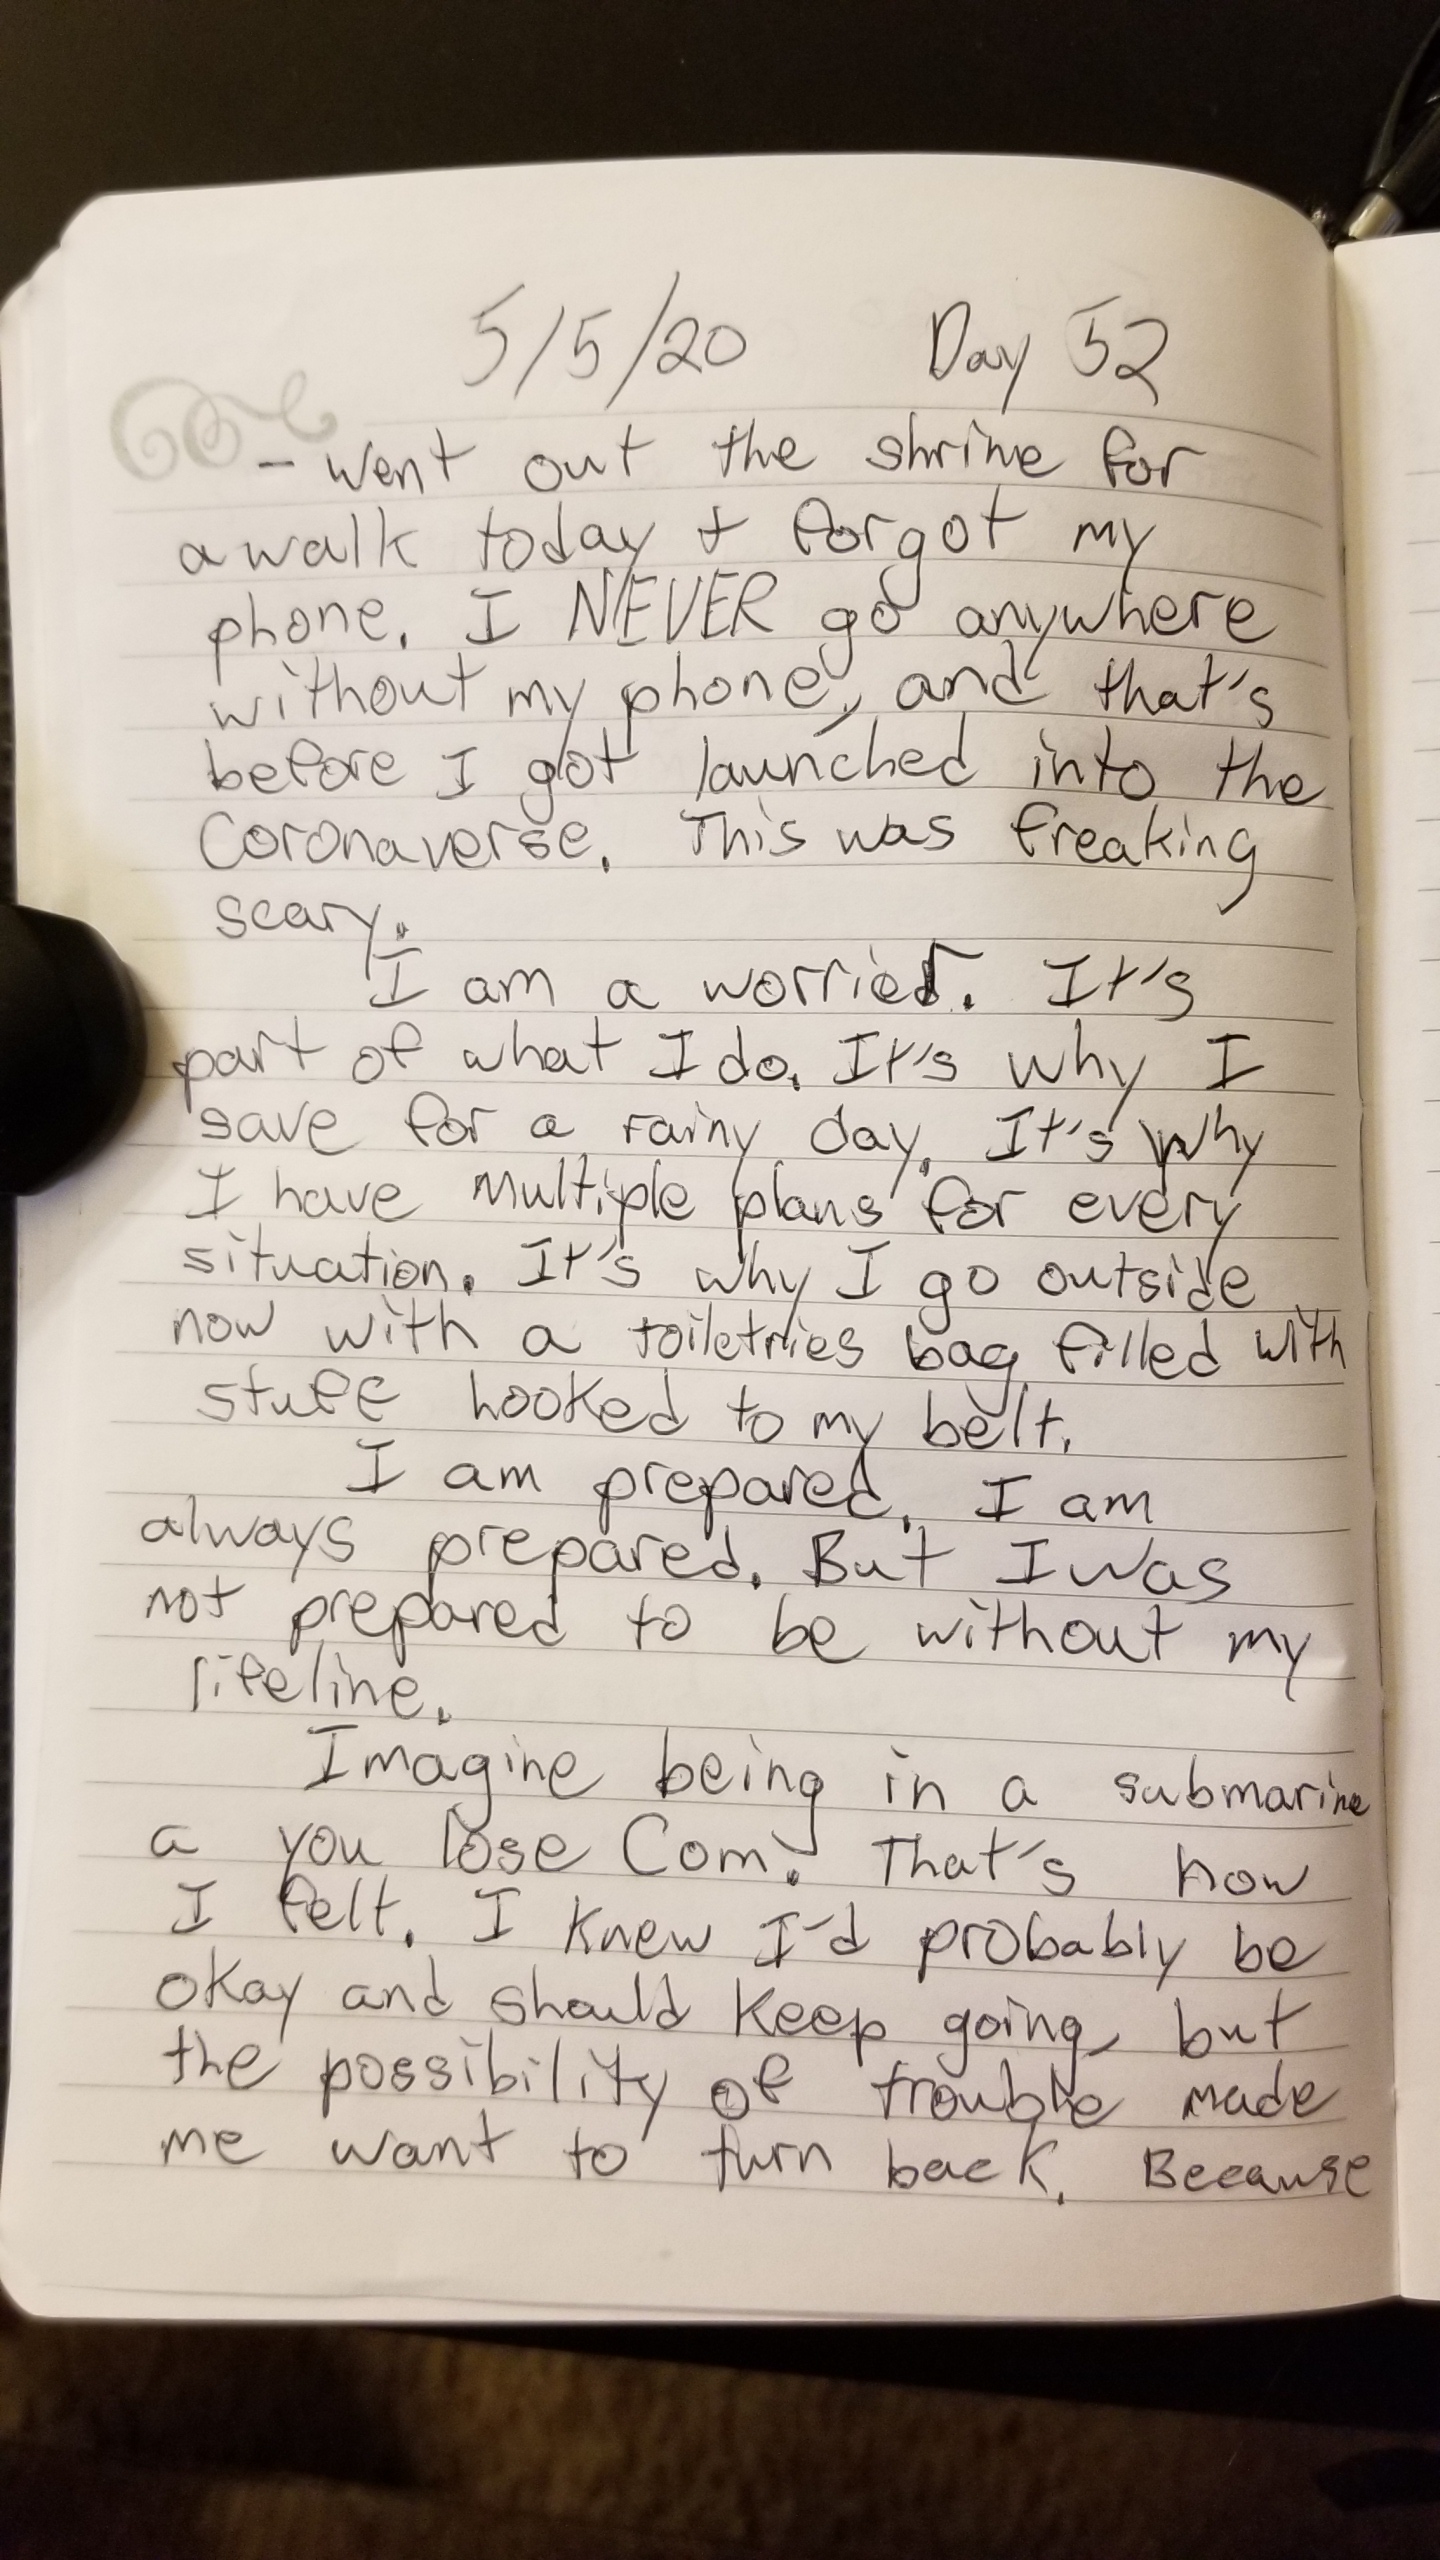 5/5/20 Day 52
- Went out the shrine for
a walk today + forgot my
phone. I NEVER go anywhere
without my phone, and that's
before I got launched into the
Coronaverse. This was freaking
scary.
I am a worrier. It's
part of what I do. It's why I
save for a rainy day. It's why
I have multiple plans for every
situation. It's why I go outside
now with a toiletries bag filled with
stuff hooked to my belt.
I am prepared. I am
always prepared. But I was
not prepared to be without my
lifeline.
Imagine being in a submarine
a you lose Com. That's how
I felt. I knew I'd probably be
okay and should keep going, but
the possibility of trouble made
me want to turn back. Because